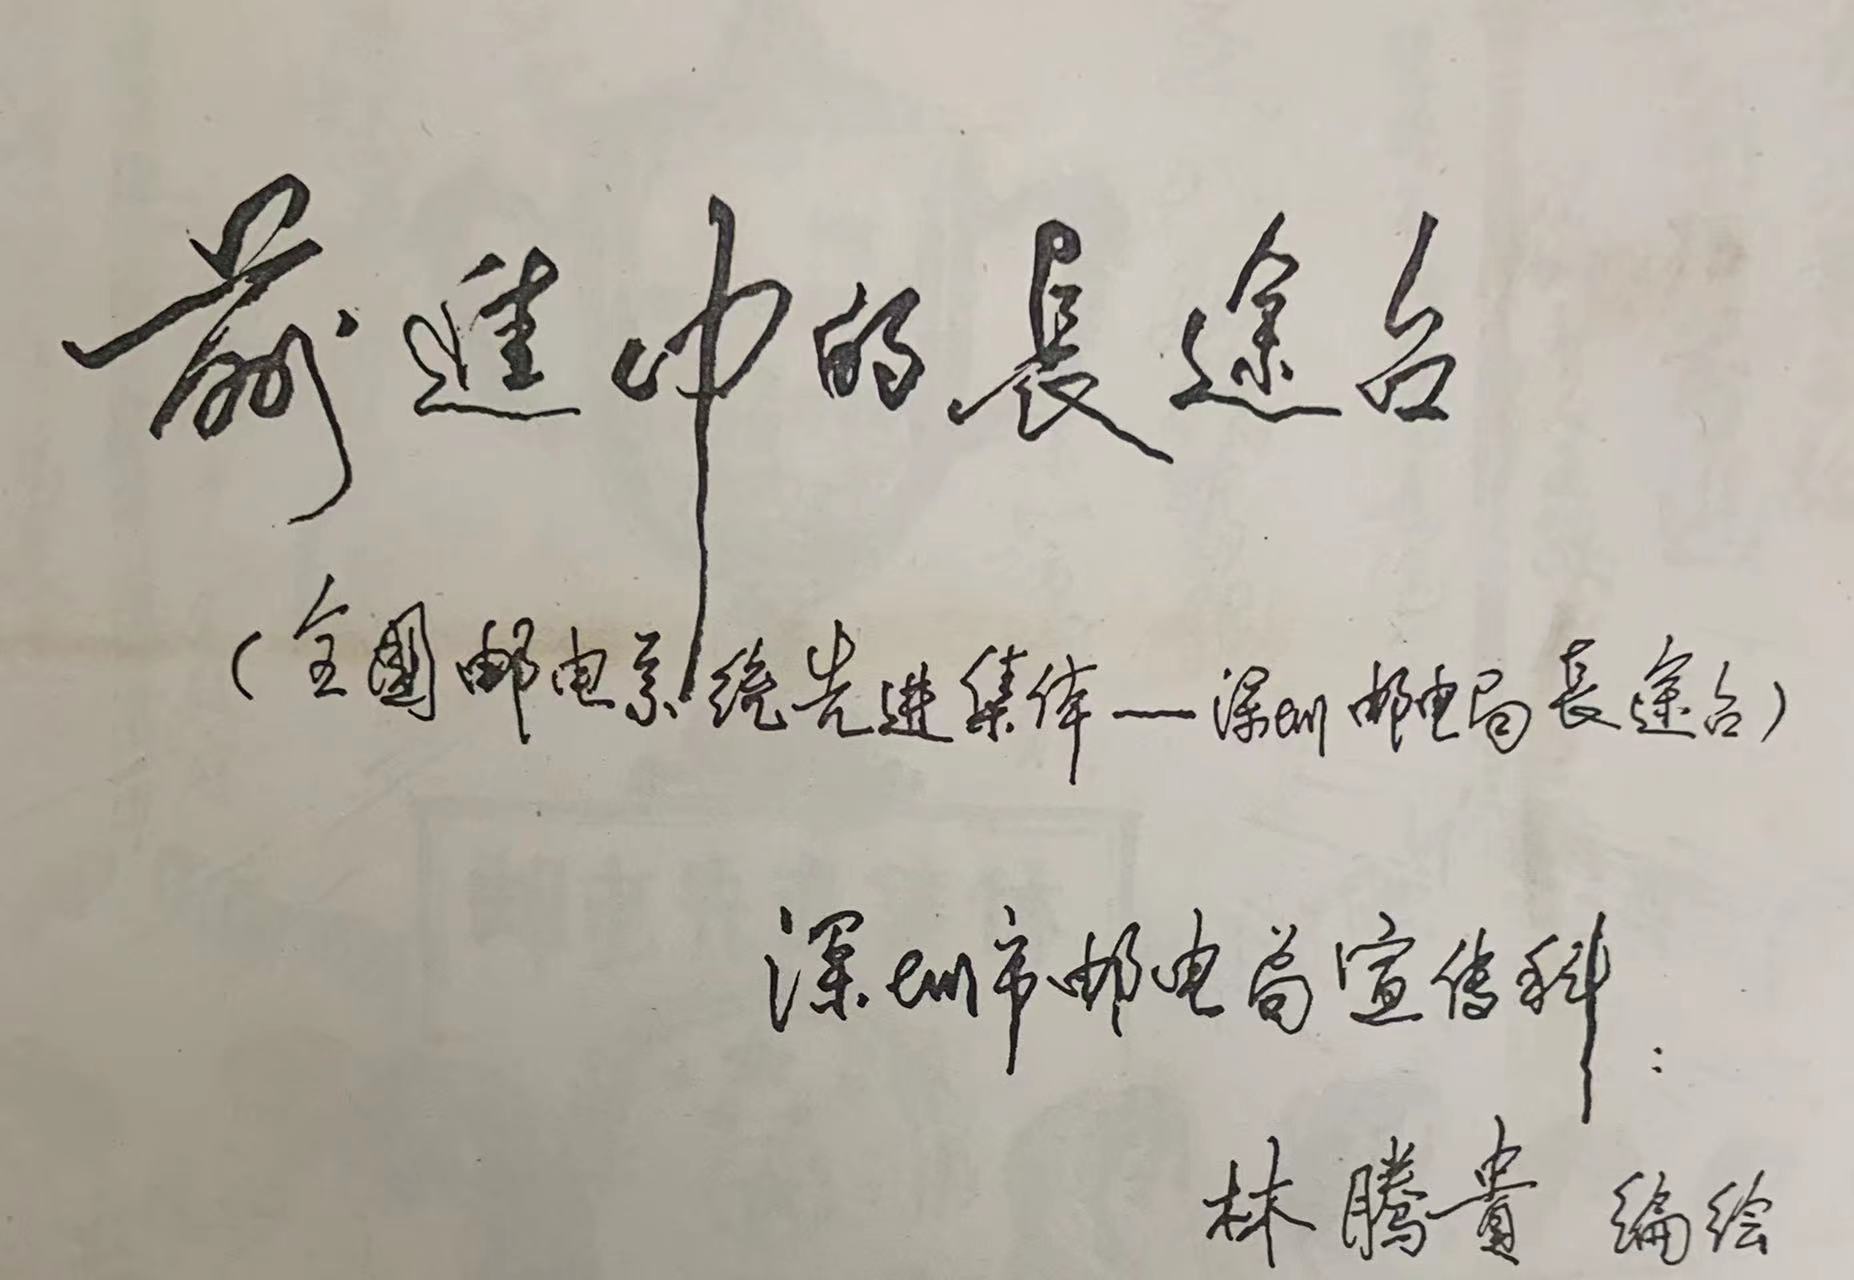 前進中的長途台
(全國邮电系统先进集体——深圳邮电局長途台)
深圳市邮电局宣传科:
林腾貴 编绘